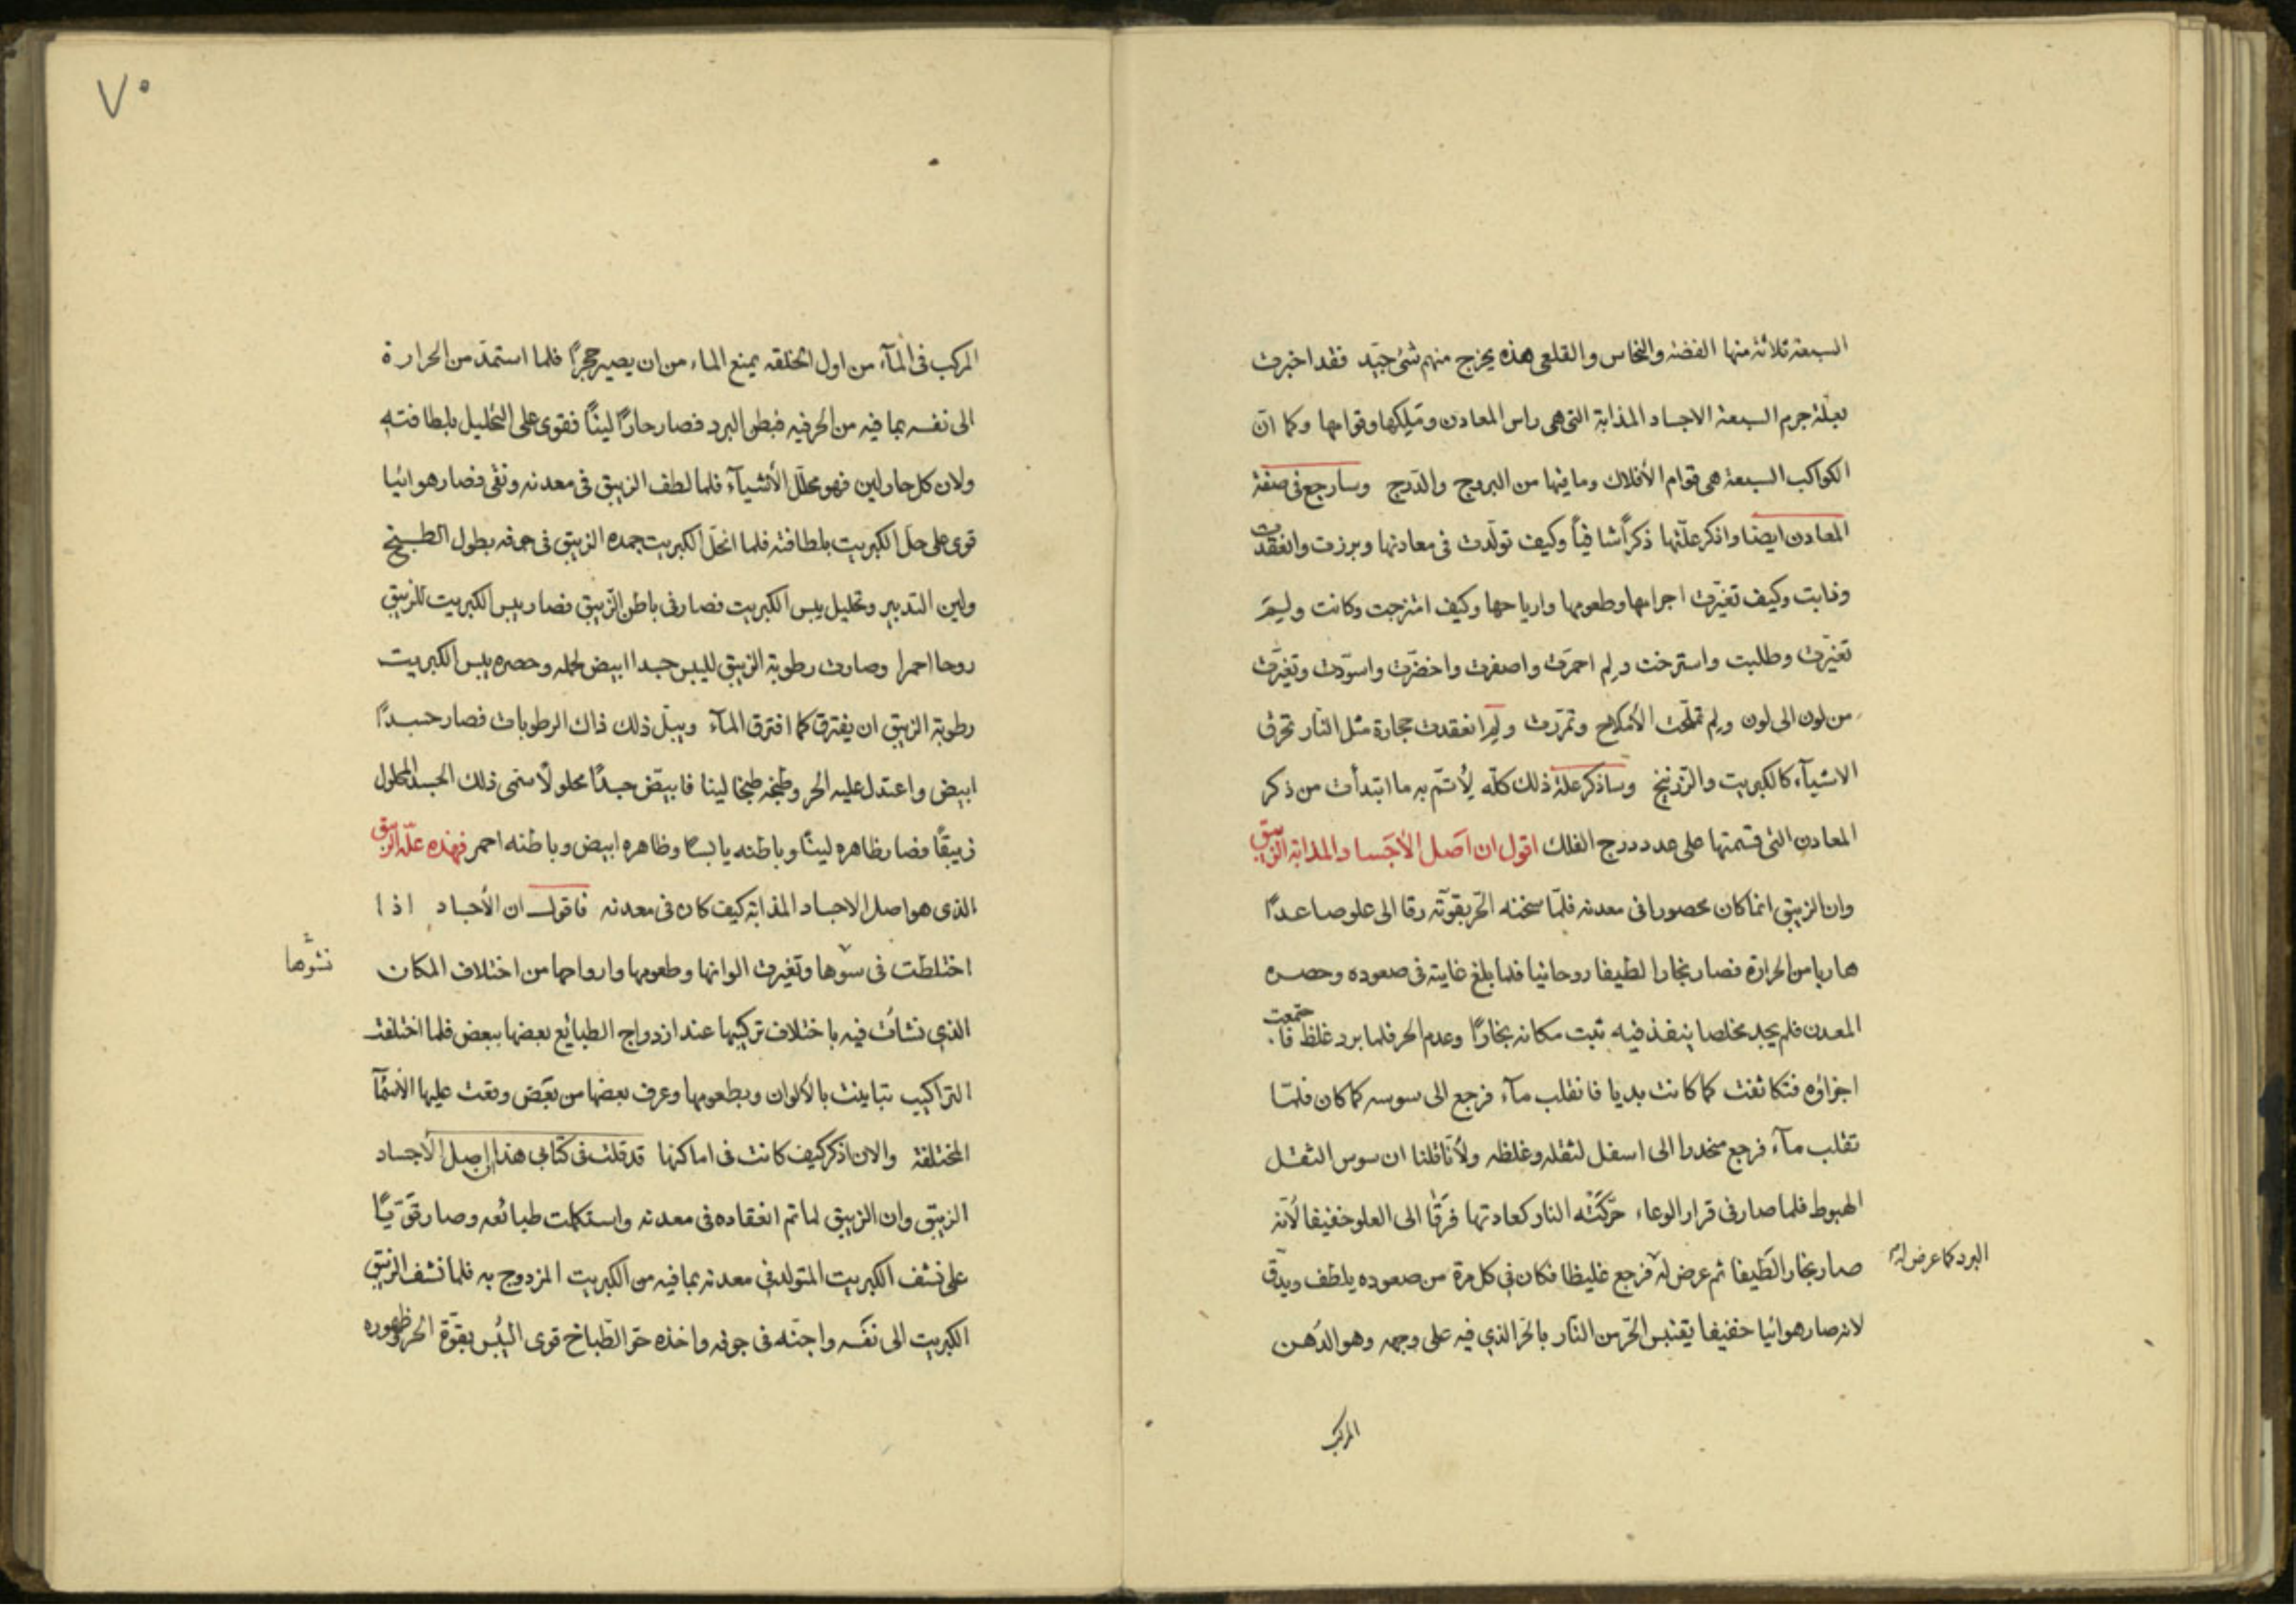 السبعة ثلاثة منها الفضة والنحاس والقلعى هذه يخرج منهم شئ جيّد فقد اخبرت
بعلّة جرم السبعة الاجساد المذابة التى هى راس المعادن وقوامها وكما انّ
الكواكب السبعة هى قوام الأفلاك وما فيها من البروج والدّرج وسارجع فى صفة
المعادن ايضا واذكر علّتها ذكراً شافياً وكيف تولّدت فى معادنها وبرزت وانعقدت
وذابت وكيف تغيّرت اجرامها وطعومها وارياحها وكيف امتزجت وكانت ولِمَ
تغيّرت وصلبت واسترخت ولِم احمرّت واصفرت واخضرّت واسوّدت وتغيّرت
من لون الى لون ولِم تملّحت الأملاح وتمرّرت ولِمَ انعقدت حجارة مثل النّار تحرق
الاشيآء كالكبريت والزّرنيخ وساذكر علّة ذلك كلّه لِأُتمّ به ما ابتدأت من ذكر
المعادن التى قسمتها على عدد درج الفلك اقول ان اَصل الأجَساد المذابة الزيبق
وان الزيبق انما كان محصورا فى معدنه فلمّا سخنه الحّر بقوّته رقا الى علو صاعدًا
هاربا من الحرارة فصار بخارا لطيفا روحانيا فلما بلغ غايته فى صعوده وحصره
المعدن فلم يجد مخلصا ينفذ فيه ثبت مكانه بخارًا وعدم الحر فلما برد غلظ فاجتمعت
اجزاؤه فتكاثفت كما كانت بديا فانقلب مآء فرجع الى سوسه كما كان فلمّا
تقلب مآء فرجع منحدرا الى اسفل لثقله وغلظه ولأنّا قلنا ان سوس الثقل
الهبوط فلما صار فى قرار الوعاء حرّكَتْه النار كعادتها فَرَقَا الى العلو خفيفا لأنّه
صار بخارا لَطيفا ثم عرض له فرجع غليظا فكان فى كل مرة من صعوده يلطف ويدقّ
البرد كما عرض له
لانه صار هوائيا خفيفا يقتبس الحّر من النّار بالحَرّ الذي فيه على وجهه وهو الدُهن
المركب
٧٠
المركب فى المآء من اول الخلقه يمنع الماء من ان يصير حجرًا فلما استمدّ من الحرارة
الى نفسه بما فيه من الحر فيه فبطن البرد فصار حارًا لينًا فقوى على التحليل بلطافته
ولان كل حار لين فهو محلّل الأشيآء فلما لطف الزيبق فى معدنه ونقى فصار هوائيا
قوى على حلّ الكبريت بلطافته فلما انحلّ الكبريت جمده الزيبق فى جوفه بطول الطبخ
ولين التدبير وتحليل يبس الكبريت فصار فى باطن الزيبق فصار يبس الكبريت للزيبق
روحا احمرا وصارت رطوبة الزيبق لليبس جسدا ابيض لحمله وحصره يبس الكبريت
رطوبة الزيبق ان يفترق كما افترق المآء ويبّل ذلك ذاك الرطوبات فصار جسدًا
ابيض واعتدل عليه الحر وطبخه طبخا لينا فابيّض جسدًا محلولًا سمى ذلك الجسد المحلول
زيبقًا فصار ظاهره لينًا وباطنه يابسًا وظاهره ابيض وباطنه احمر فهذه علّة الزيبق
الذى هو اصل الاجساد المذابة كيف كان فى معدنه فاقول ان الأجساد اذا
اختلطت فى سوّها وتغيرت الوانها وطعومها وارواحها من اختلاف المكان
نشوّها
الذي نشأت فيه باختلاف تركيبها عند ازدواج الطبائع بعضها ببعض فلما اختلفت
التراكيب تباينت بالألوان وبطعومها وعرف بعضها من بَعَض وقعت عليها الأسمآ
المختلفة والان اذكر كيف كانت فى اماكنها قد قلت فى كتابى هذا ان اصل الأجساد
الزيبق وان الزيبق لما تم انعقاده فى معدنه واستكملت طبائعه وصار قَوّيًا
على نشف الكبريت المتولد فى معدنه بما فيه من الكبريت المزدوج به فلما نشف الزيبق
الكبريت الى نفسه واجنّه فى جوفه واخذه حرّ الطّباخ قوى اليُبس بقوّة الحر وظهوره